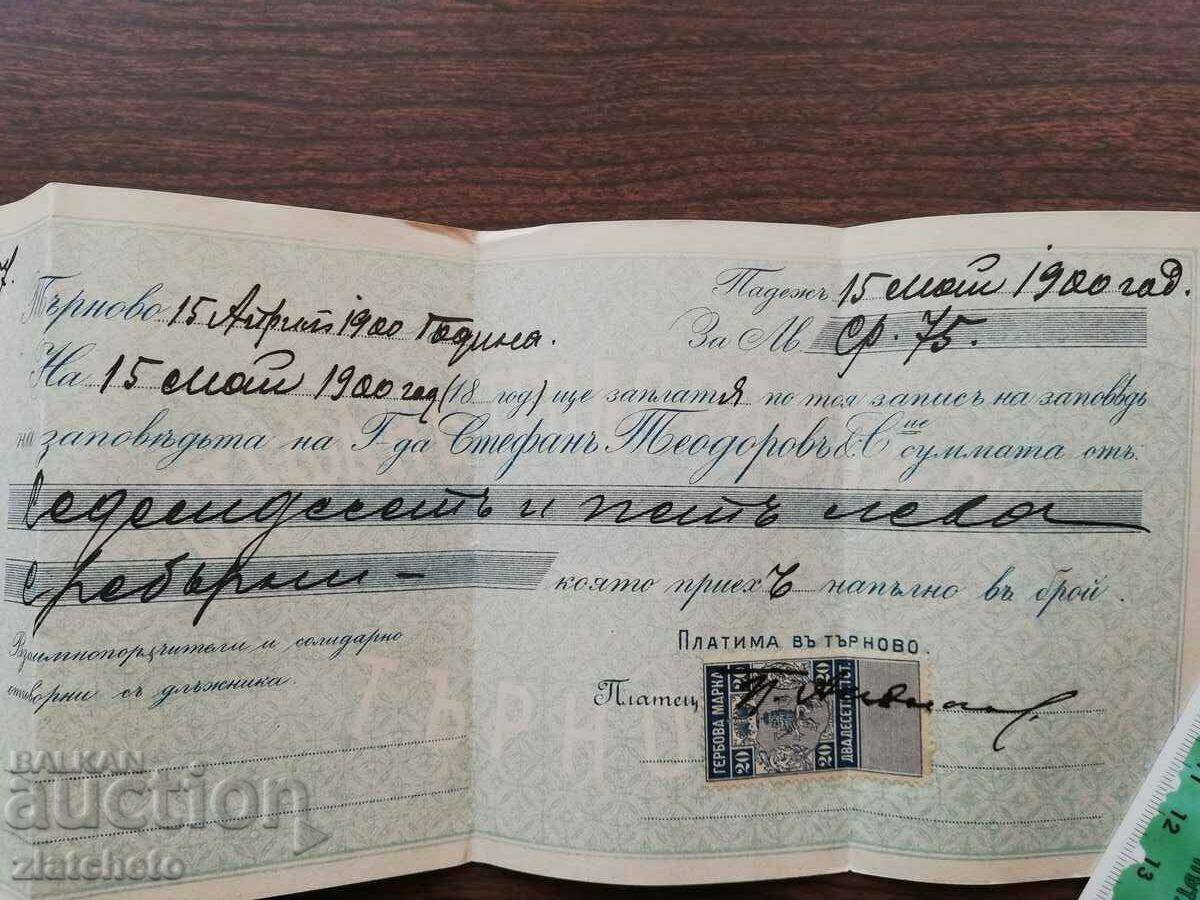 Търново 15 Априлъ 1900 Година.
Падежъ 15 Май 1900 год.
За Лв. Ср. 75.
На 15 Май 1900 год (18 год) ще заплатя по тоя записъ на заповѣдь
на заповѣдьта на Г-да Стефанъ Теодоровъ & С-ие суммата отъ
Седемдесетъ и петь лева
сребърни — която приехъ напълно въ брой.
Взаимнопорѫчители и солидарно
отговорни съ длъжника.
ПЛАТИМА ВЪ ТЪРНОВО.
Платец
ГЕРБОВА МАРКА
20 20
20 20
ДВАДЕСЕТЬ СТ.
ТЪРНО
BALKAN
auction
zlatcheto
11 12 13